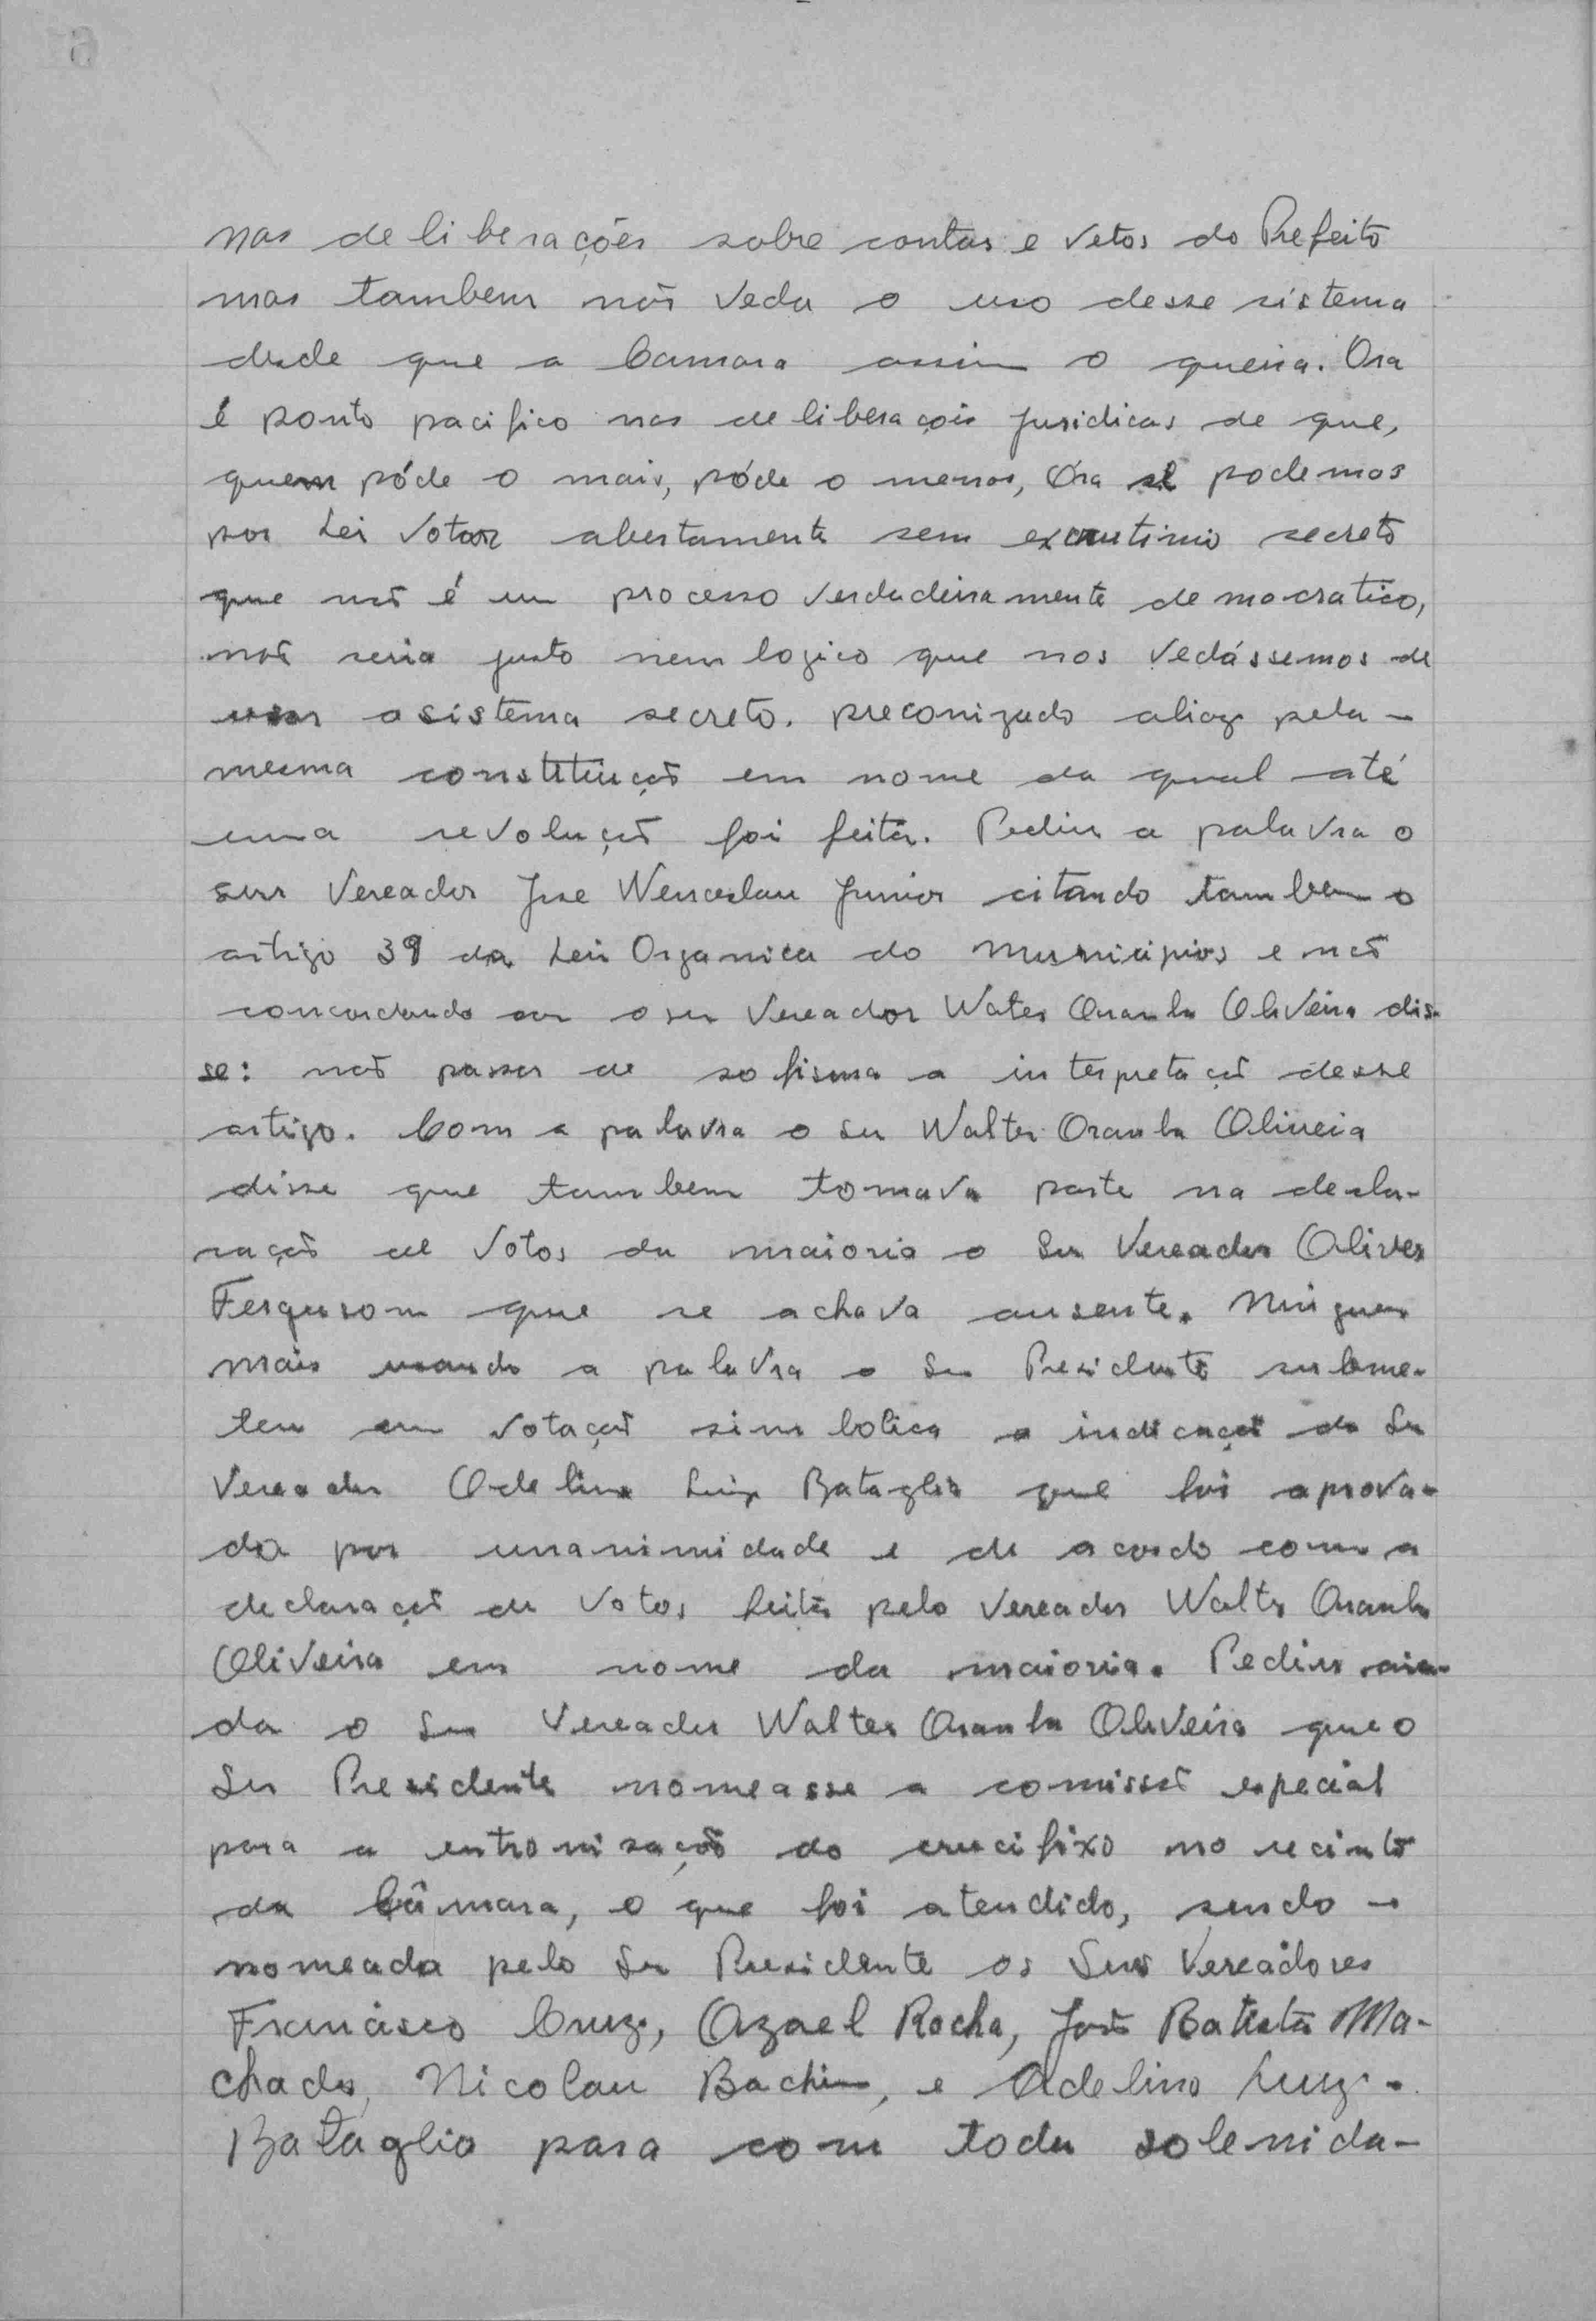 nas deliberações sobre contas e vetos do Prefeito
mas tambem não veda o uso desse sistema
desde que a Camara assim o queira. Ora
é ponto pacifico nas deliberações juridicas de que,
quem póde o mais, póde o menos, Óra se podemos
por Lei votar abertamente sem excrutinio secreto
que não é um processo verdadeiramente democratico,
não seria justo nem logico que nos vedássemos de
usar o sistema secreto. preconizado aliaz pela -
mesma constituição em nome da qual até
uma revolução foi feita. Pediu a palavra o
snr Vereador Jose Wenceslau Junior citando tambem o
artigo 39 da Lei Organica do Municipios e não
concordando com o snr Vereador Water Oranha Oliveira dis-
se: não passar de sofisma a interpretação desse
artigo. Com a palavra o Snr Walter Oranha Oliveira
disse que tambem tomava parte na decla-
ração de votos da maioria o Snr Vereador Oliver
Fergusom que se achava ausente. Ninguem
mais usando a palavra o Snr Presidente subme-
teu em votação simbolica a indicação do Snr
Vereador Odelino Luiz Bataglia que foi aprova-
da por unanimidade e de acordo com a
declaração de votos feita pelo Vereador Walter Oranha
Oliveira em nome da maioria. Pediu ain-
da o Snr Vereador Walter Oranha Oliveira que o
Snr Presidente nomeasse a comissão especial
para a entronisação do crucifixo no recinto
da Câmara, o que foi atendido, sendo -
nomeada pelo Snr Presidente os Snrs Vereadores
Francisco Cruz, Ozael Rocha, João Batista Ma-
chado, Nicolau Bachim, e Adelino Luiz -
Bataglia para com toda solenida-